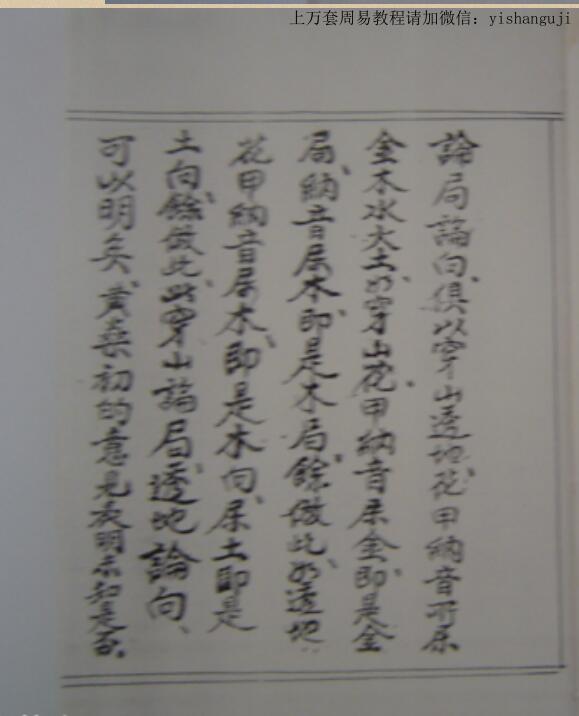 上万套周易教程请加微信：yishanguji
論局論向、俱以穿山透地、花甲納音所屬
金木水火土、如穿山花甲納音屬金、即是金
局、納音屬木、即是木局、餘倣此、如透地
花甲納音屬木、即是木向、屬土即是
土向、餘倣此、此穿山論局、透地論向、
可以明矣、黃 初的意見表明、未知是否。